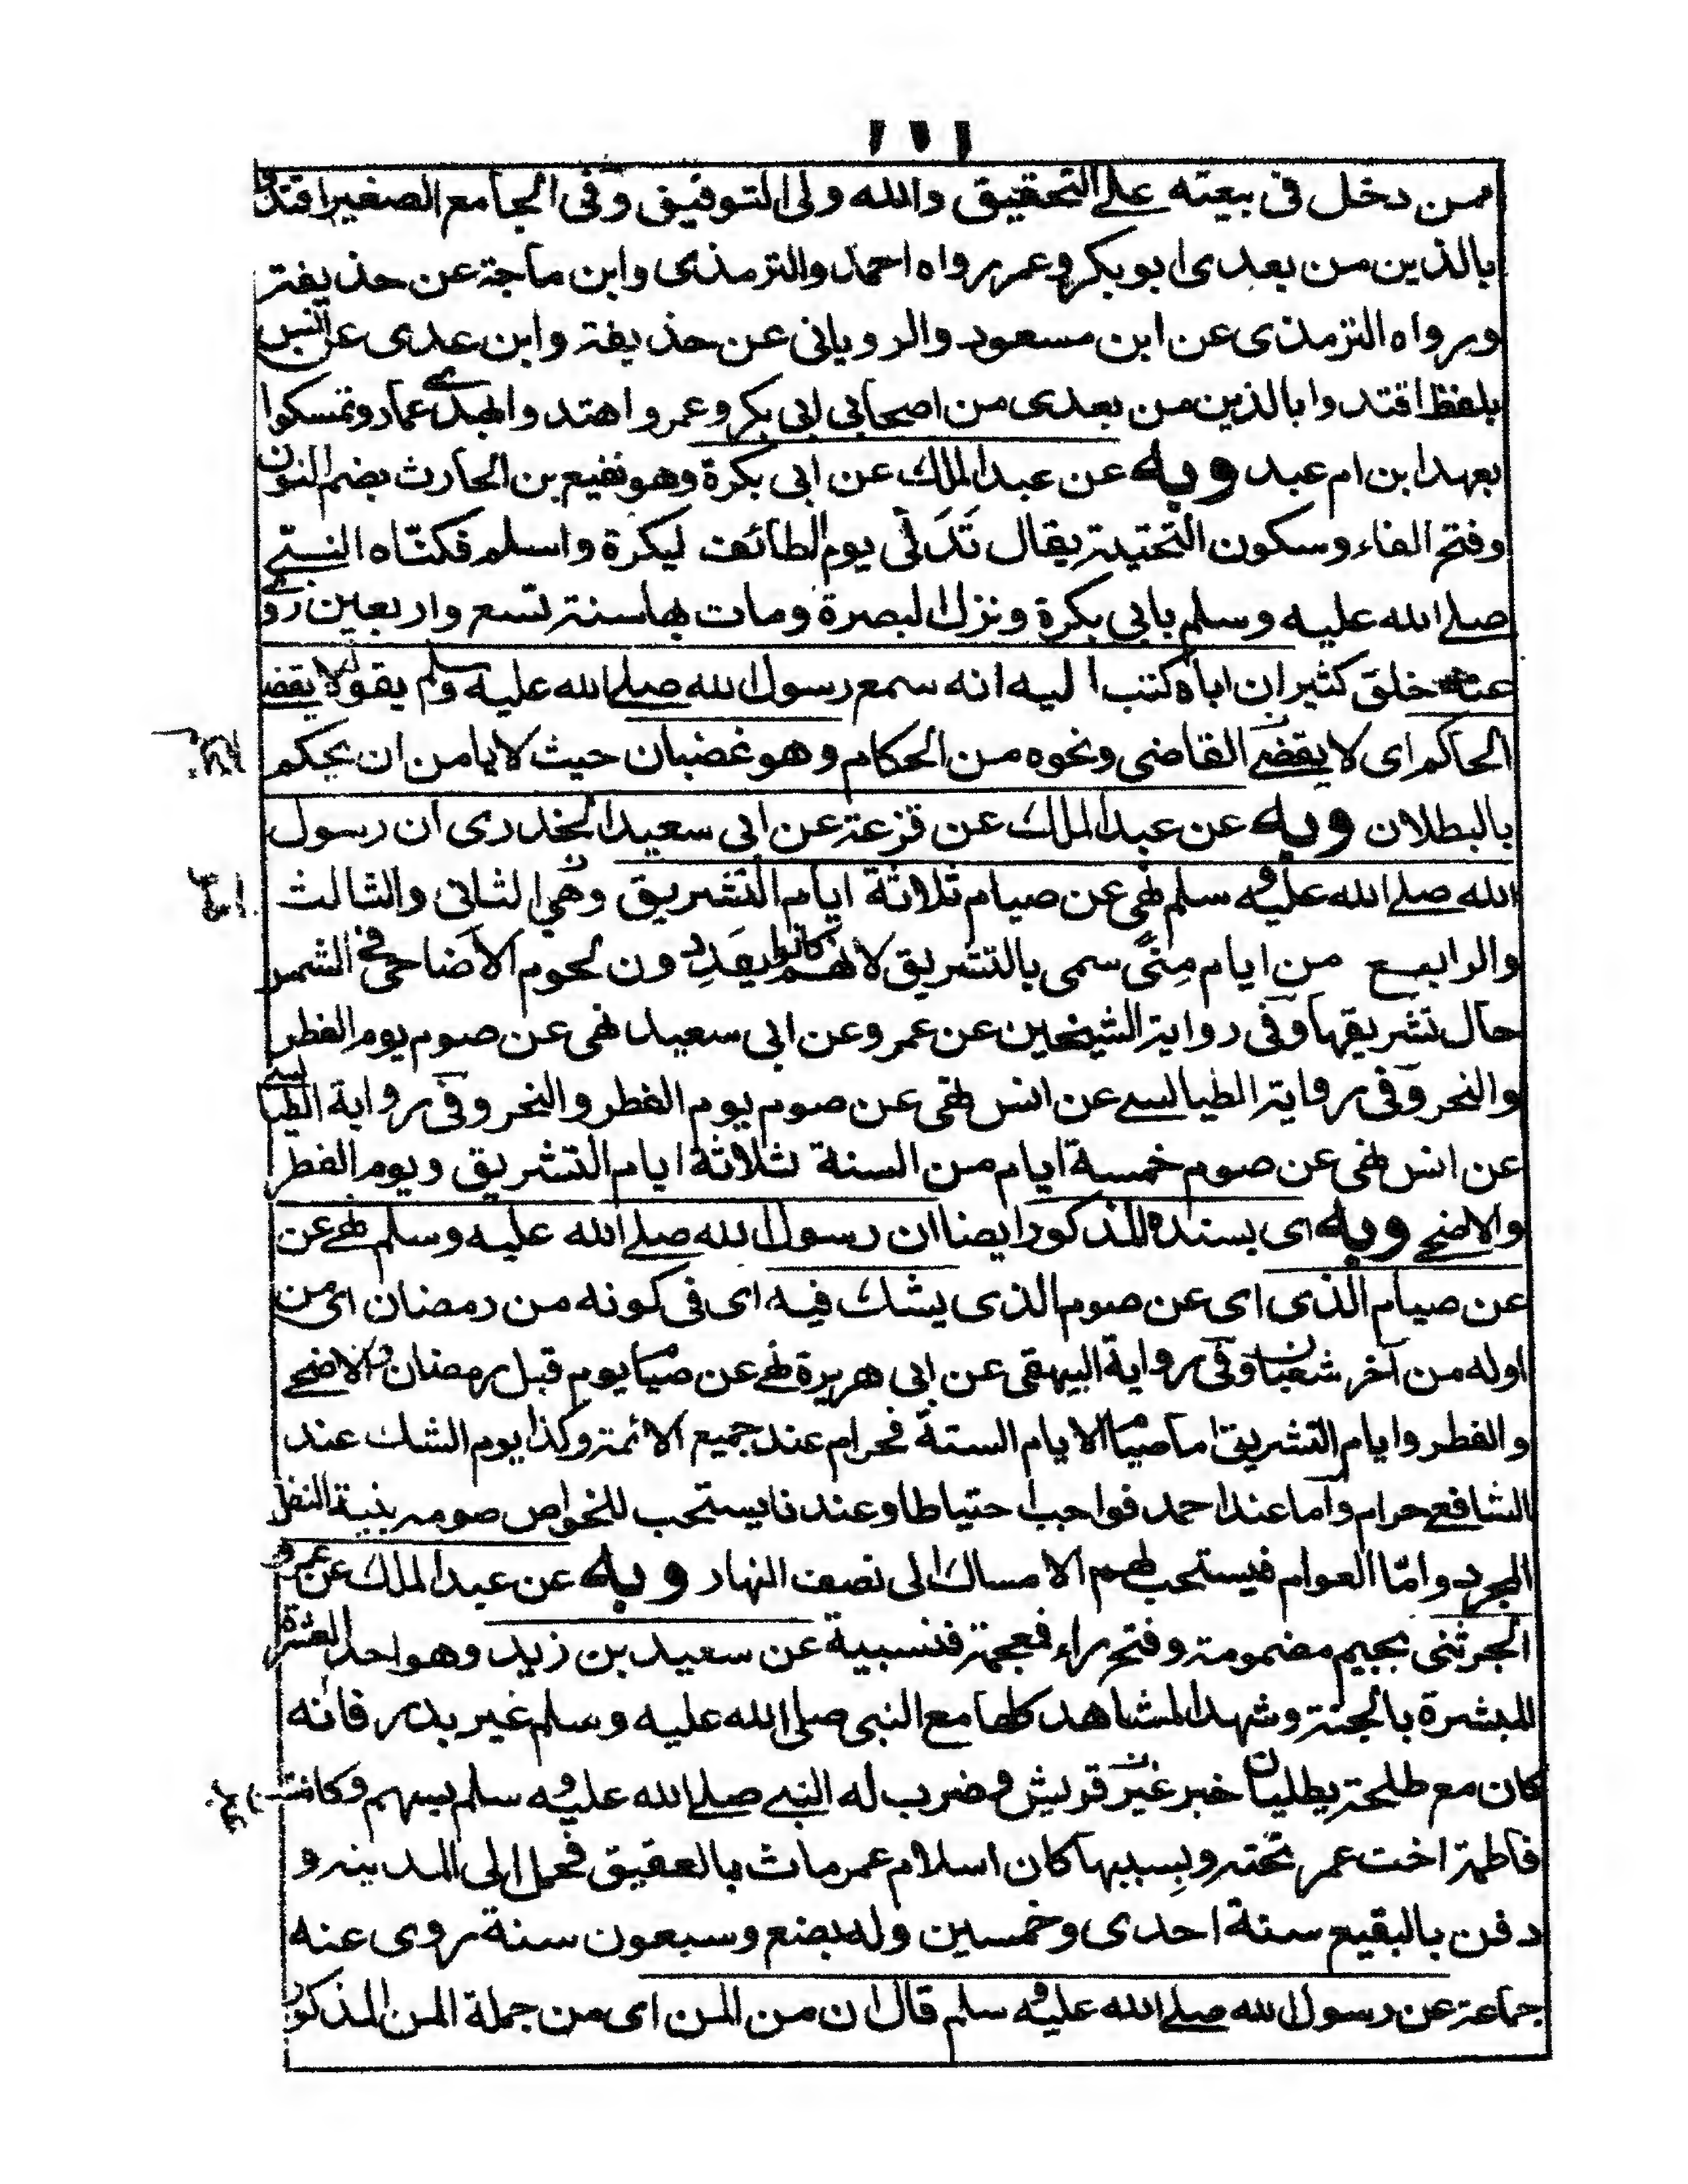 ١١١
ممن دخل فى بيعته على التحقيق والله ولى التوفيق وفى الجامع الصغير اقتدوا
بالذين من بعدى ابو بكر وعمر رواه احمد والترمذى وابن ماجة عن حذيفة
ورواه الترمذى عن ابن مسعود والرويانى عن حذيفة وابن عدى عن انس
بلفظ اقتدوا بالذين من بعدى من اصحابى ابى بكر وعمر واهتدوا بهدى عمار وتمسكوا
بعهد ابن ام عبد وبه عن عبد الملك عن ابى بكرة وهو نفيع بن الحارث بضم النون
وفتح الفاء وسكون التحتية يقال تَدَلّى يوم الطائف لبكرة واسلم فكنّاه النبى
صلى الله عليه وسلم بابى بكرة ونزل البصرة ومات بها سنة تسع واربعين روى
عنه خلق كثير ان اباه كتب اليه انه سمع رسول الله صلى الله عليه وسلم يقول لا يقضى
الحاكم اى لا يقضى القاضى ونحوه من الحكام وهو غضبان حيث لا يامن ان يحكم
بالبطلان وبه عن عبد الملك عن قزعة عن ابى سعيد الخدرى ان رسول
الله صلى الله عليه وسلم نهى عن صيام ثلاثة ايام التشريق وهى الثانى والثالث
والرابع من ايام مِنًى سمى بالتشريق لانهم كانوا يقدِدون لحوم الاضاحى فى الشمس
حال تشريقها وفى رواية الشيخين عن عمر وعن ابى سعيد نهى عن صوم يوم الفطر
والنحر وفى رواية الطيالسى عن انس نهى عن صوم يوم الفطر والنحر وفى رواية الطيالسى
عن انس نهى عن صوم خمسة ايام من السنة ثلاثة ايام التشريق ويوم الفطر
والاضحى وبه اى بسنده المذكور ايضا ان رسول الله صلى الله عليه وسلم نهى عن
عن صيام الذى اى عن صوم الذى يشك فيه اى فى كونه من رمضان اى من
اوله من آخر شعبان وفى رواية البيهقى عن ابى هريرة نهى عن صيام يوم قبل رمضان والاضحى
والفطر وايام التشريق اما صيام الايام الستة فحرام عند جميع الائمة وكذا يوم الشك عند
الشافعى حرام واما عند احمد فواجب احتياطا وعندنا يستحب للخواص صومه بنية النفل
المجرد وامّا العوام فيستحب لهم الامساك الى نصف النهار وبه عن عبد الملك عن عمرو
الجرشى بجيم مضمومة وفتح راء فمعجمة فنسبية عن سعيد بن زيد وهو احد العشرة
المبشرة بالجنة وشهد المشاهد كلها مع النبى صلى الله عليه وسلم غير بدر فانه
كان مع طلحة يطلبان خبر عير قريش وضرب له النبى صلى الله عليه وسلم بسهم وكانت
فاطمة اخت عمر تحته وبِسببها كان اسلام عمر مات بالعقيق فحمل الى المدينة و
دفن بالبقيع سنة احدى وخمسين وله بضع وسبعون سنة روى عنه
جماعة عن رسول الله صلى الله عليه وسلم قال ان من المن اى من جملة المن المذكور